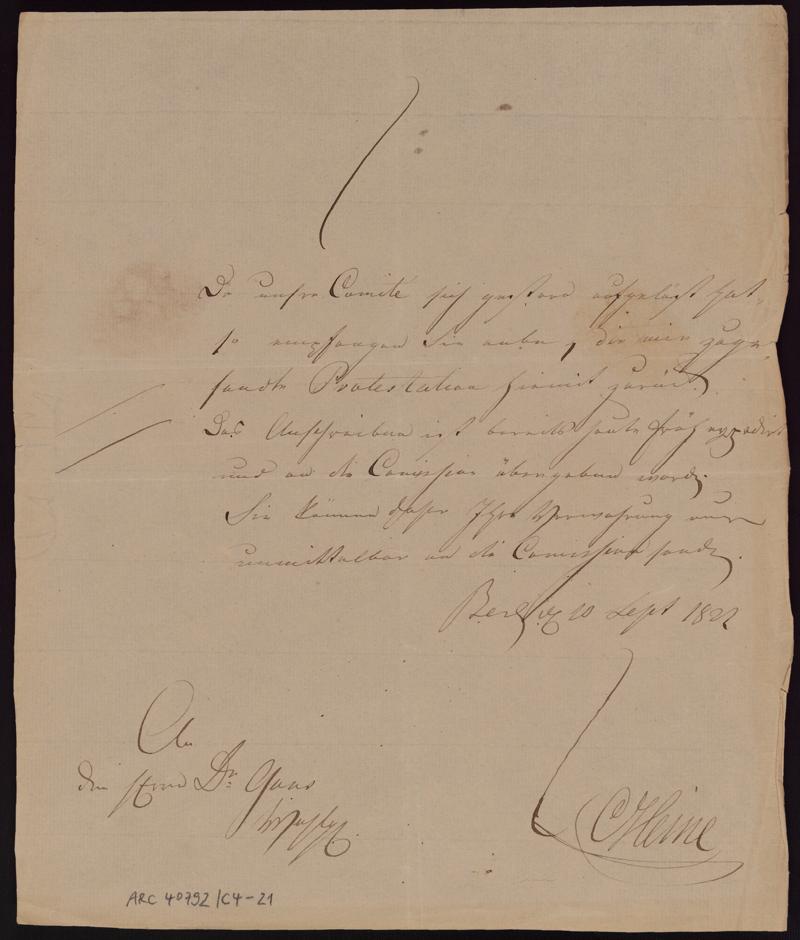 Da unsre Comité sich gestern aufgelöst hat,
so empfangen Sie anbei, die mir zuge-
sandte Protestation hiemit zurück.
Das Anschreiben ist bereits heute früh expedirt
und an die Comission übergeben word.
Sie können daher Ihre Verwahrung nur
unmittelbar an die Comission send.
Berlin 10 Sept 1822
Heine
An
den Herrn Dr. Gans
ARC 40792/C4-21